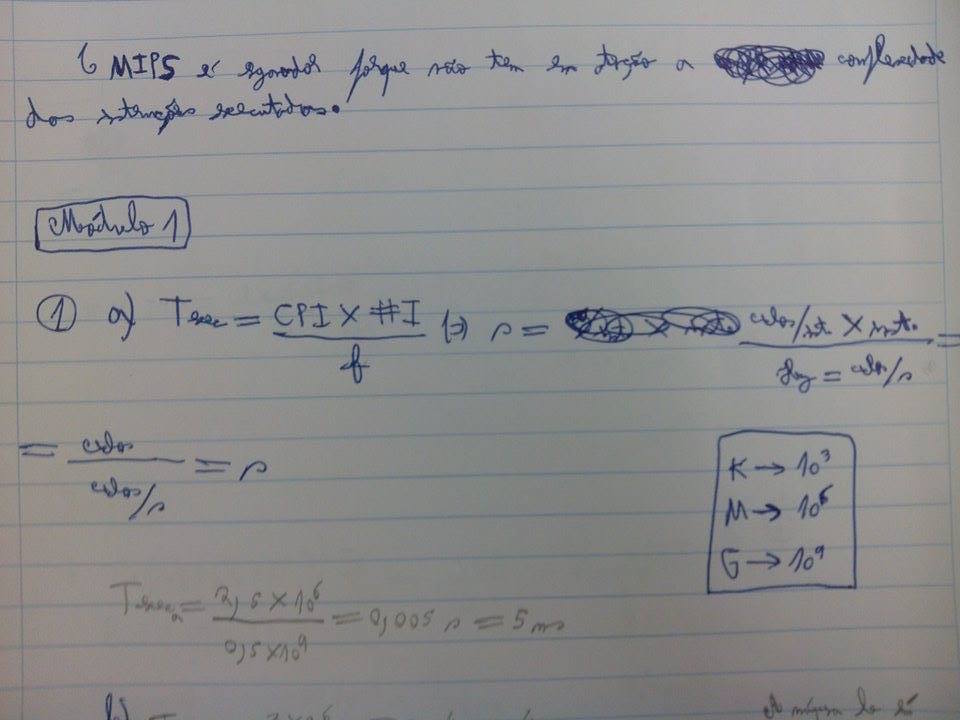 O MIPS é enganador porque não tem em atenção a complexidade
dos instruções executadas.
Módulo 1
① a) Texec = CPI X #I / f (=) s = ciclos/inst. X inst. / Hz = ciclos/s =
= ciclos / ciclos/s = s
K → 10³
M → 10⁶
G → 10⁹
Texec a = 2,5 X 10⁶ / 0,5 X 10⁹ = 0,005 s = 5 ms
b)
A máquina